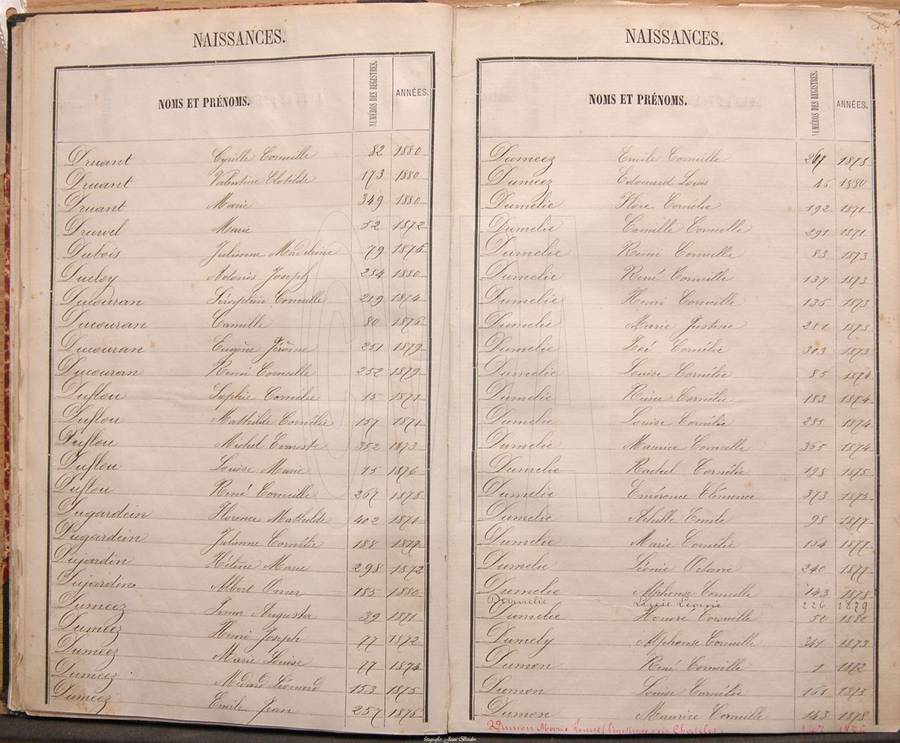 NAISSANCES.
NOMS ET PRÉNOMS. NUMÉROS DES REGISTRES. ANNÉES.
Druant Cyrille Corneille 82 1880
Druant Valentine Clotilde 173 1880
Druant Marie 349 1880
Druvel Marie 52 1872
Dubois Julienne 79 1876
Ducloy Joseph 254 1880
Ducouran Séraphine Corneille 219 1874
Ducouran Camille 80 1876
Ducouran Eugène Jérôme 251 1879
Ducouran Remi Corneille 252 1879
Duflou Sophie Cornélie 15 1871
Duflou Mathilde Cornélie 157 1871
Duflou Michel Erneste 352 1873
Duflou Louise Marie 15 1876
Duflou René Corneille 267 1878
Dugardein Florence Mathilde 402 1871
Dugardein Julienne Cornélie 188
Dujardin Hélène Marie 298 1872
Dujardin Albert Omer 185 1880
Dumeez Augusta 39 1871
Dumeez Henri Joseph 77 1872
Dumeez Marie Louise 77 1874
Dumeez Médard Léonard 153 1875
Dumeez Emile Jean 257 1875
NAISSANCES.
NOMS ET PRÉNOMS. NUMÉROS DES REGISTRES. ANNÉES.
Dumeez Emile Corneille 267 1878
Dumeez Edouard Louis 45 1880
Dumelie Cornélie 192 1871
Dumelie Camille Corneille 291 1871
Dumelie Remi Corneille 83 1873
Dumelie René Corneille 137 1873
Dumelie Henri Corneille 135 1873
Dumelie Marie Justine 281 1873
Dumelie Zoé Cornélie 303 1873
Dumelie Louise Cornélie 85 1874
Dumelie Cornélie 183 1874
Dumelie Louise Cornélie 281 1874
Dumelie Maurice Corneille 355 1874
Dumelie Rachel Cornélie 198 1875
Dumelie Emérence Clémence 373 1875
Dumelie Achille Emile 98 1877
Dumelie Marie Cornélie 1877
Dumelie Léonie Octavie 240 1877
Dumelie Alphonse Corneille 143 1878
Dumelie Louise Léonie 226 1879
Dumelie Honoré Corneille 50 1880
Dumely Alphonse Corneille 341 1873
Dumon René Corneille 1 1872
Dumon Louise Cornélie 163 1873
Dumon Maurice Corneille 143 1878
Dumon Marie 1876